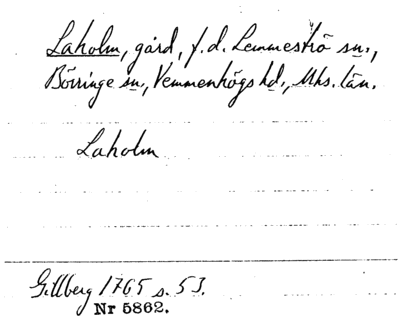 Laholm, gård, f.d. Lemmeströ sn.,
Börringe sn., Vemmenhögs hd., Mhs. län.
Laholm
Gillberg 1765 s. 53.
Nr 5862.